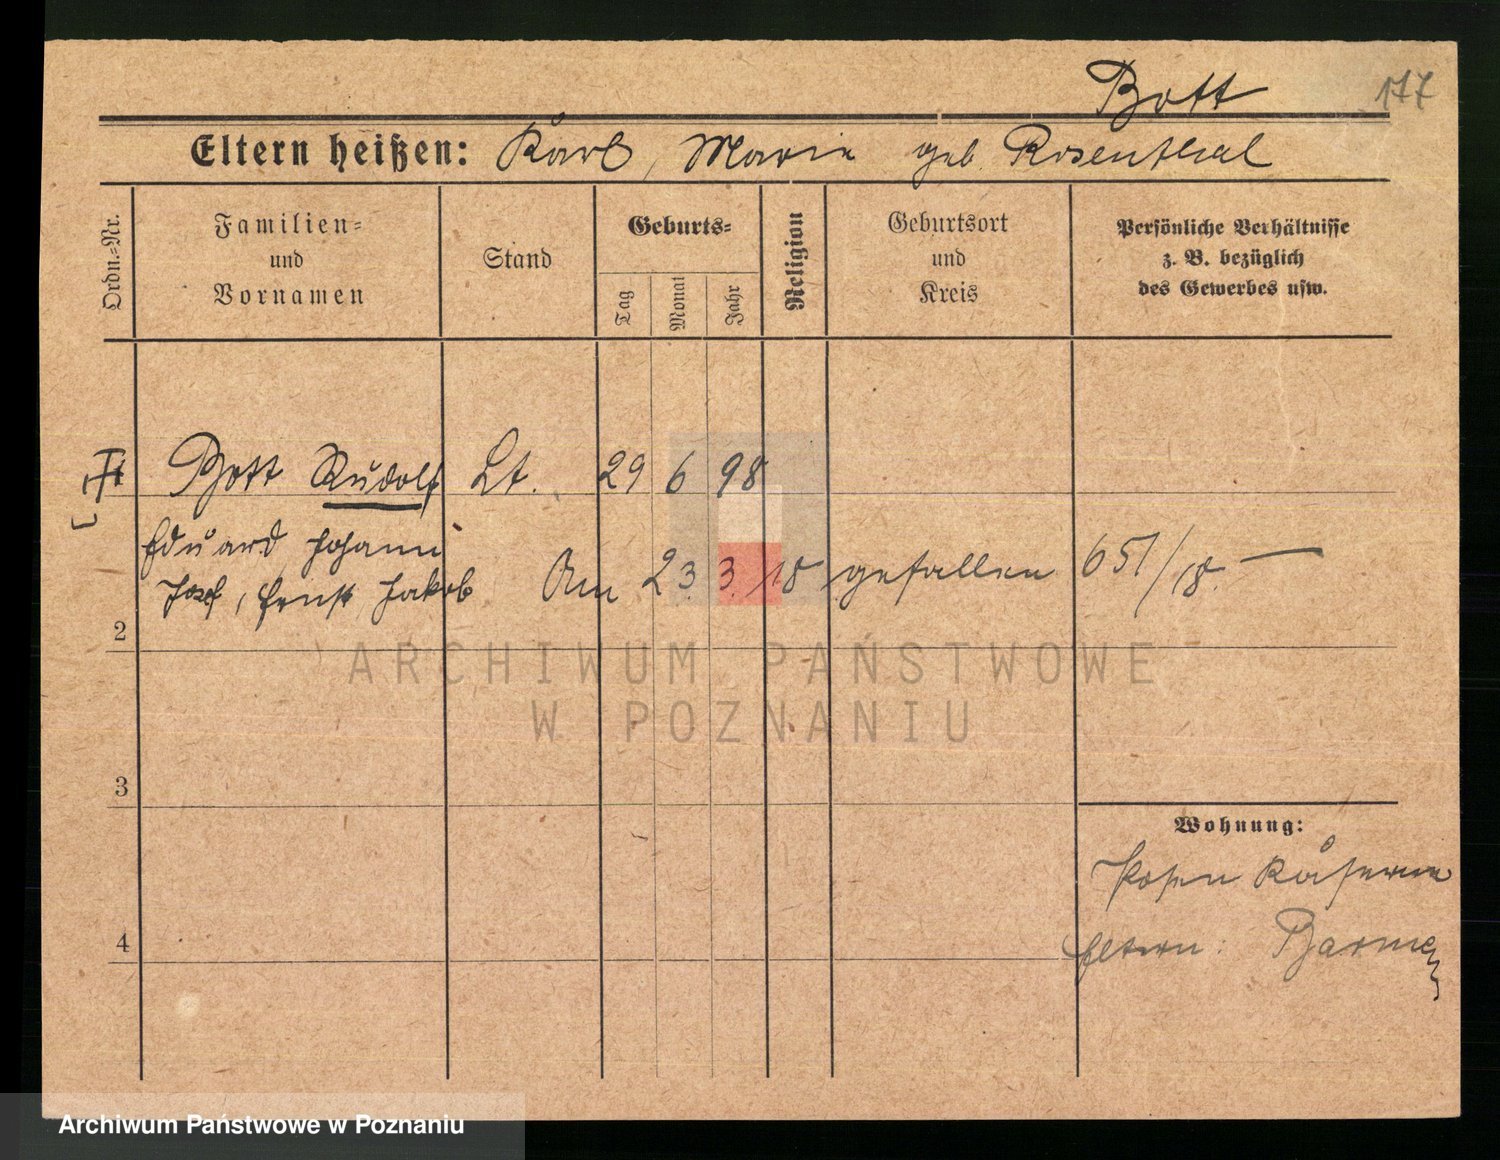 Bott 177
Eltern heißen: Karl, Marie geb. Rosenthal
Ordn.=Nr.
Familien=
und
Vornamen
Stand
Geburts=
Tag
Monat
Jahr
Religion
Geburtsort
und
Kreis
Persönliche Verhältnisse
z. B. bezüglich
des Gewerbes usw.
Bott Rudolf Lt. 29 6 98
Eduard, Johann
Josef, Ernst, Jakob Am 23. 3. 18 gefallen 651/18. —
2
3
4
Wohnung:
Posen Kaserne
Eltern: Barmen
ARCHIWUM PAŃSTWOWE
W POZNANIU
Archiwum Państwowe w Poznaniu